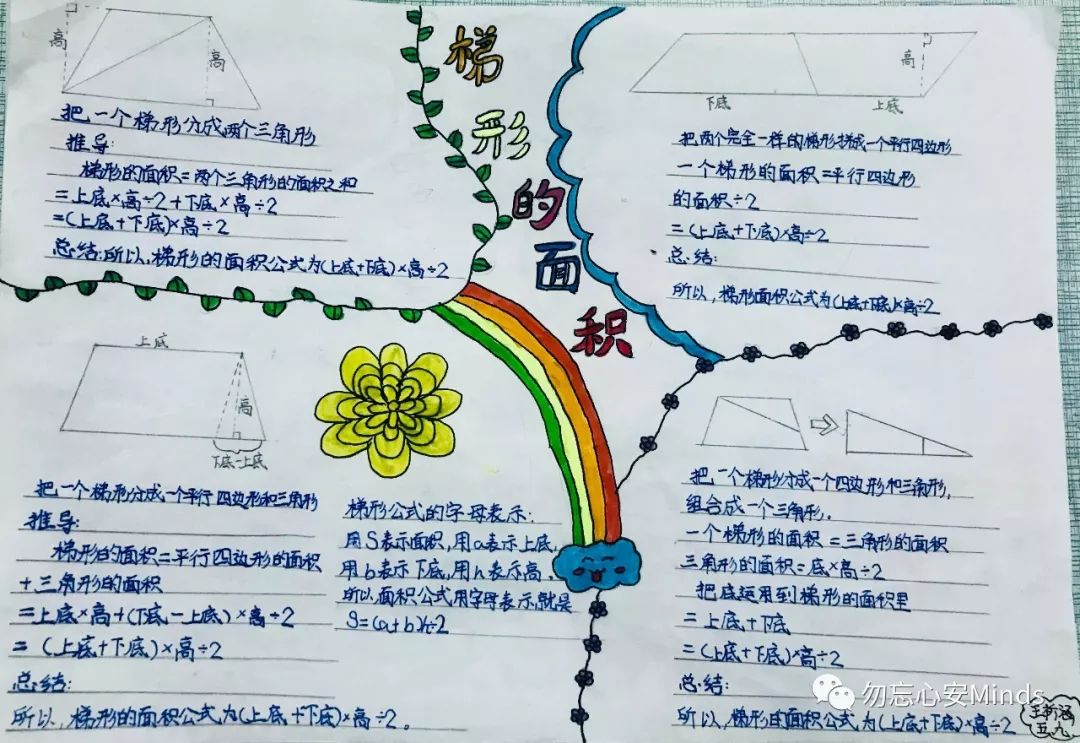 梯
形
的
面
积
高
高
把一个梯形分成两个三角形
推导:
梯形的面积=两个三角形的面积之和
=上底×高÷2+下底×高÷2
=(上底+下底)×高÷2
总结:所以,梯形的面积公式为(上底+下底)×高÷2
高
下底
上底
把两个完全一样的梯形拼成一个平行四边形
一个梯形的面积=平行四边形
的面积÷2
=(上底+下底)×高÷2
总结:
所以,梯形面积公式为(上底+下底)×高÷2
上底
高
下底-上底
把一个梯形分成一个平行四边形和三角形
推导:
梯形的面积=平行四边形的面积
+三角形的面积
=上底×高+(下底-上底)×高÷2
=(上底+下底)×高÷2
总结:
所以,梯形的面积公式为(上底+下底)×高÷2。
梯形公式的字母表示:
用S表示面积,用a表示上底,
用b表示下底,用h表示高。
所以面积公式用字母表示就是
S=(a+b)h÷2
把一个梯形分成一个四边形和三角形,
组合成一个三角形。
一个梯形的面积=三角形的面积
三角形的面积=底×高÷2
把底运用到梯形的面积里
=上底+下底
=(上底+下底)×高÷2
总结:
所以,梯形的面积公式为(上底+下底)×高÷2
勿忘心安Minds
五九